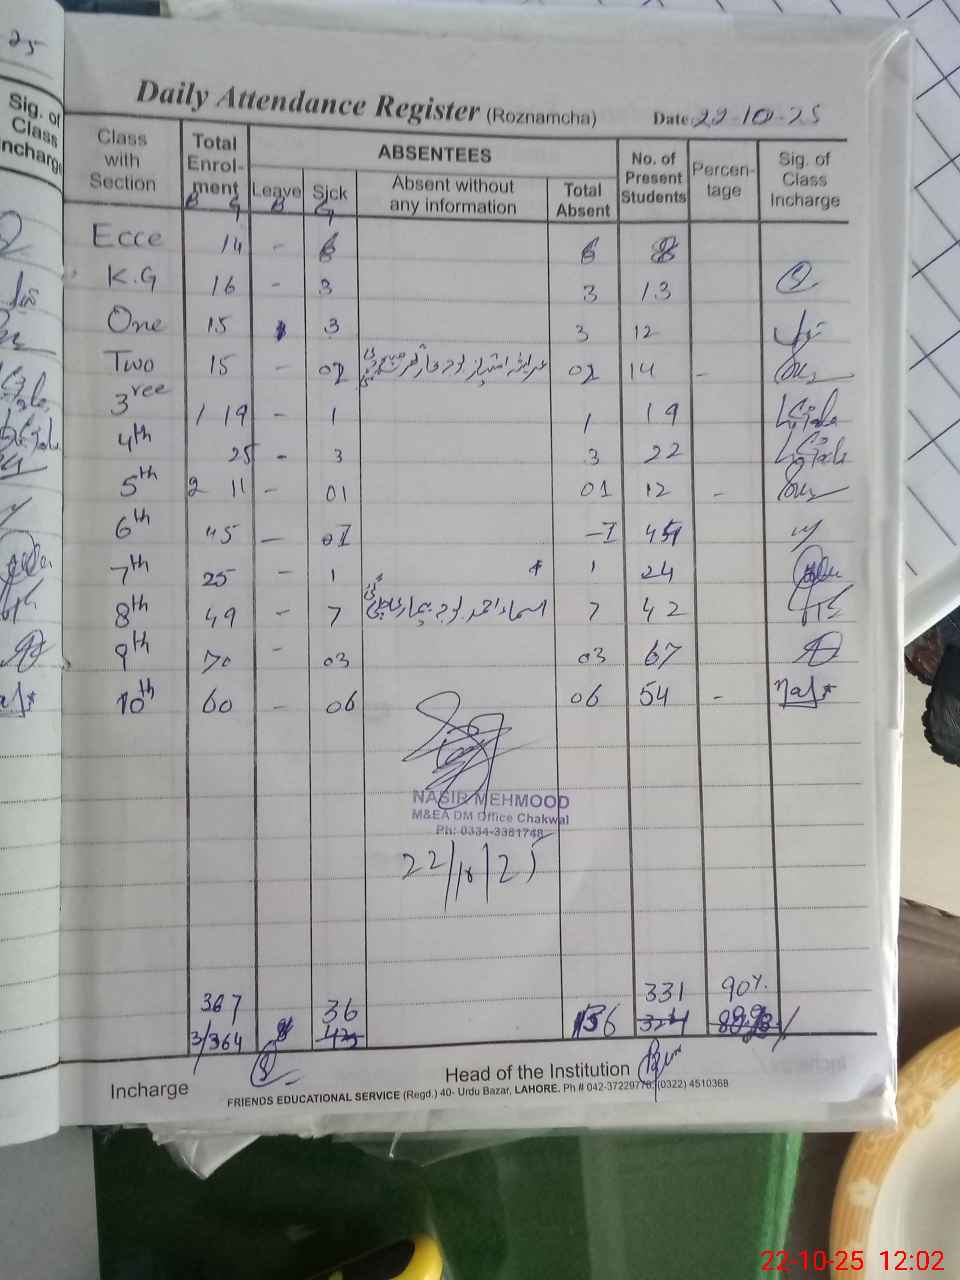 25
Sig. of
Class
Incharge
Daily Attendance Register (Roznamcha) Date 22-10-25
Class with Section Total Enrolment B G ABSENTEES Leave B Sick G Absent without any information Total Absent No. of Present Students Percentage Sig. of Class Incharge
Ecce 14 - 6 6 8
K.G 16 - 3 3 13
One 15 3 3 12
Two 15 - 02 02 14 -
3ree 1 19 - 1 1 19
4th 25 - 3 3 22
5th 2 11 - 01 01 12 -
6th 45 - 01 -1 44
7th 25 - 1 1 24
8th 49 - 7 7 42
9th 70 - 03 03 67
10th 60 - 06 06 54 -
NASIR MEHMOOD
M&EA DM Office Chakwal
Ph: 0334-3381748
22/10/25
367 36 331 90%
3/364 36
Incharge Head of the Institution
FRIENDS EDUCATIONAL SERVICE (Regd.) 40- Urdu Bazar, LAHORE. Ph # 042-37229778, (0322) 4510368
22-10-25 12:02